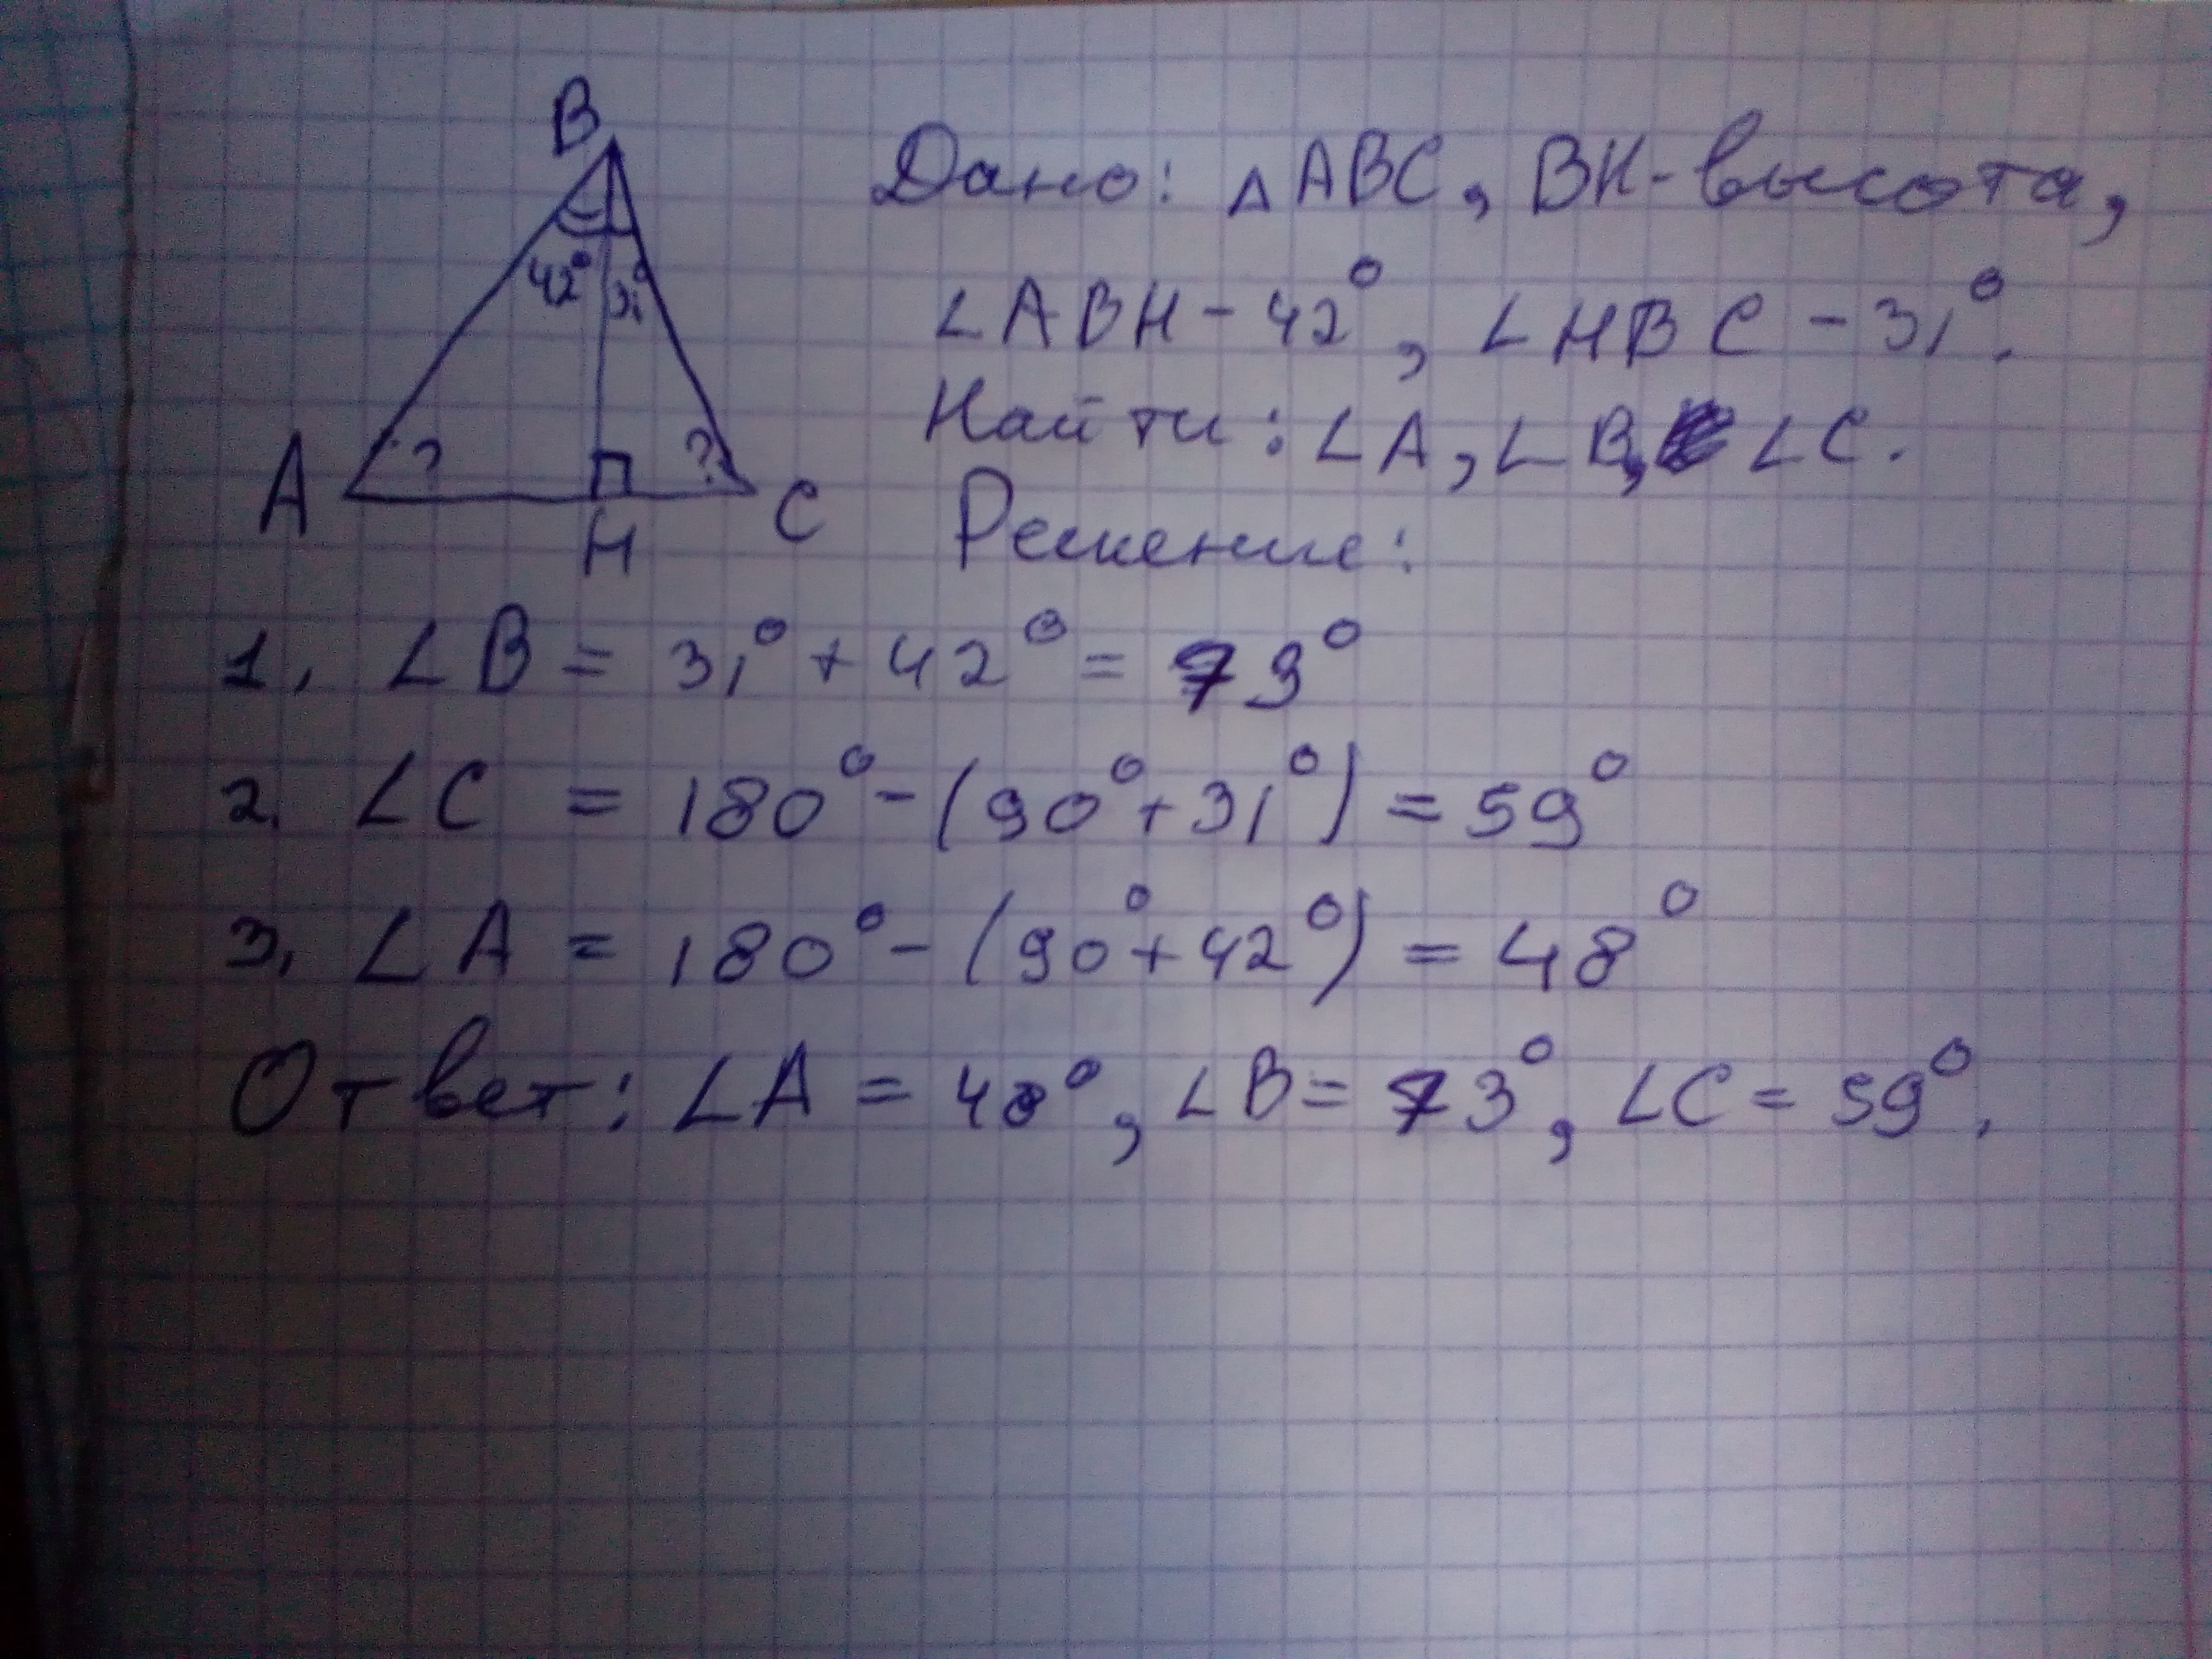 B
42° 31°
A ? ? C
H
Дано: △ABC, BH-высота,
∠ABH - 42°, ∠HBC - 31°.
Найти: ∠A, ∠B, ∠C.
Решение:
1. ∠B = 31° + 42° = 73°
2. ∠C = 180° - (90° + 31°) = 59°
3. ∠A = 180° - (90° + 42°) = 48°
Ответ: ∠A = 48°, ∠B = 73°, ∠C = 59°.